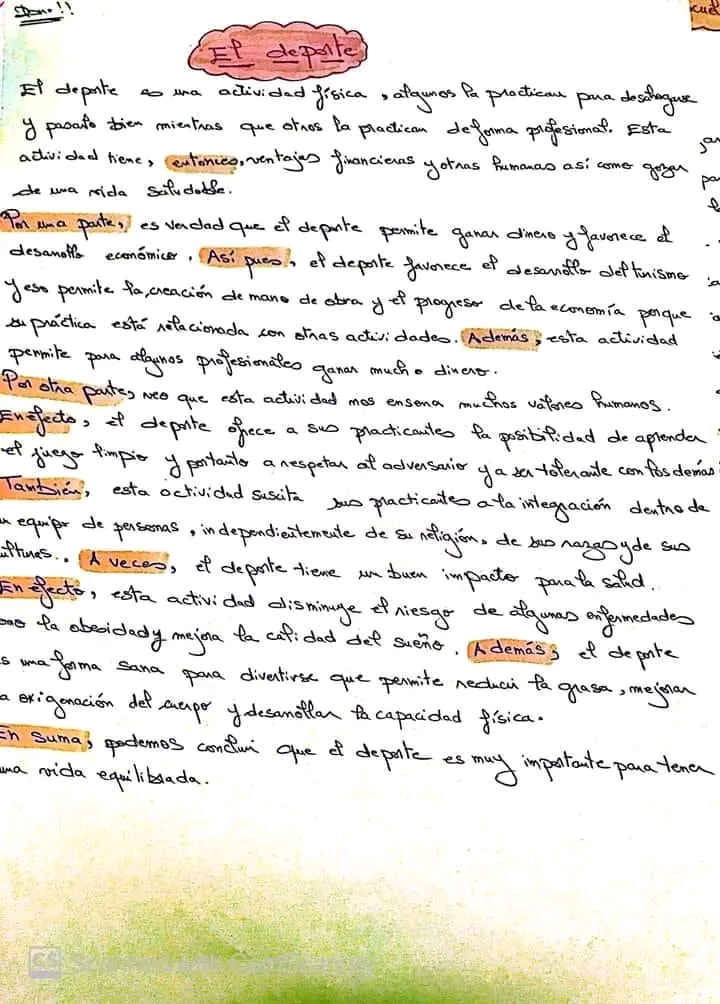 El deporte
El deporte es una actividad física, algunos la practican para desahogarse
y pasarlo bien mientras que otros la practican de forma profesional. Esta
actividad tiene, entonces, ventajas financieras y otras humanas así como gozar
de una vida saludable.
Por una parte, es verdad que el deporte permite ganar dinero y favorece el
desarrollo económico. Así pues, el deporte favorece el desarrollo del turismo
y eso permite la creación de mano de obra y el progreso de la economía porque
su práctica está relacionada con otras actividades. Además, esta actividad
permite para algunos profesionales ganar mucho dinero.
Por otra parte, veo que esta actividad nos ensena muchos valores humanos.
En efecto, el deporte ofrece a sus practicantes la posibilidad de aprender
el juego limpio y portanto a respetar al adversario y a ser tolerante con los demás
También, esta actividad suscita sus practicantes a la integración dentro de
equipo de personas, independientemente de su religión, de sus razas y de sus
A veces, el deporte tiene un buen impacto para la salud.
En efecto, esta actividad disminuye el riesgo de algunas enfermedades
la obesidad y mejora la calidad del sueño. Además, el deporte
una forma sana para divertirse que permite reducir la grasa, mejorar
a oxigenación del cuerpo y desarrollar la capacidad física.
En Suma, podemos concluir que el deporte es muy importante para tener
una vida equilibrada.
CS